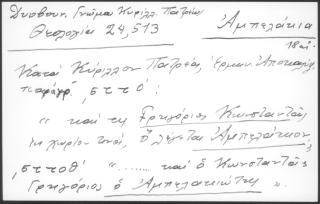 Δυοβουν. Γνώμαι Κυρίλλ. Πατρέως
Θεολογία 24,513
Ἀμπελάκια
18 αἰ.
Κατά Κύριλλον Πατρέα, ἑρμην. Ἀποκαλύψ.
παράγρ. ,ςττθ΄:
" καὶ τις Γρηγόριος Κωνσταντᾶς
ἐκ χωρίου τινός, ὃ λέγεται Ἀμπελάκιον,
,ςττθ΄ " ......... καὶ ὁ Κωνσταντᾶς
Γρηγόριος ὁ Ἀμπελακιώτης ".